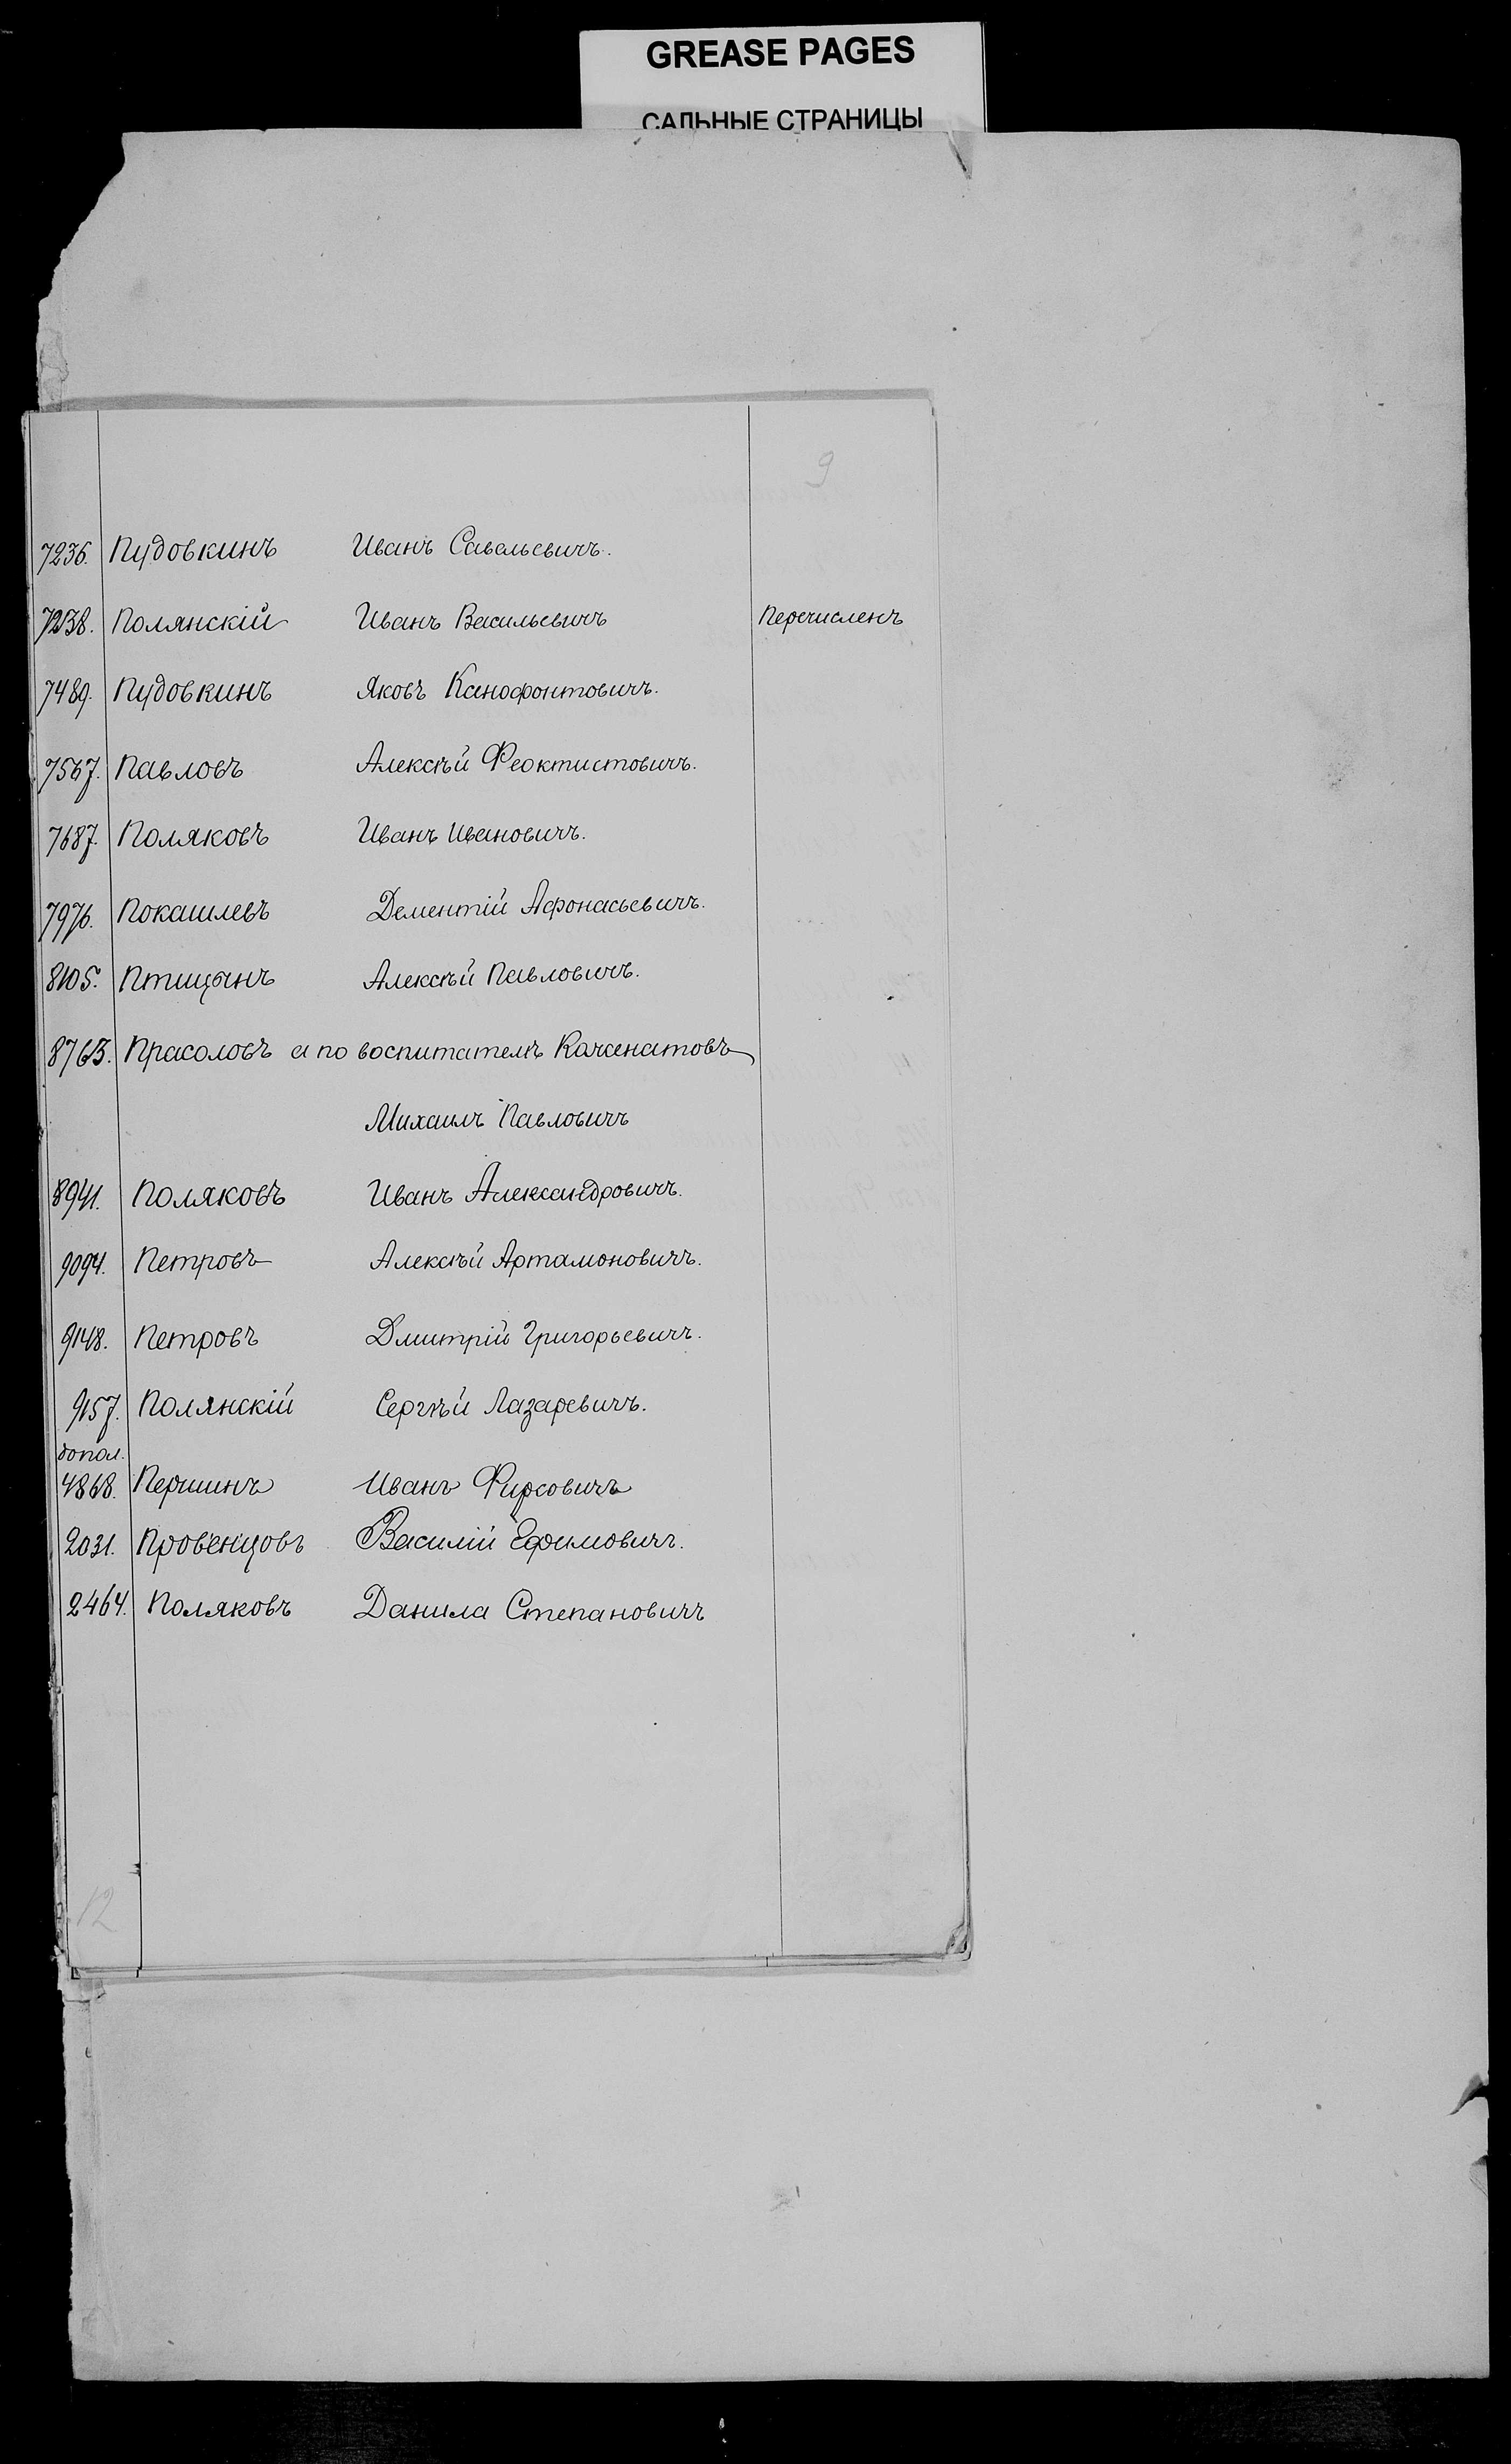 GREASE PAGES
САЛЬНЫЕ СТРАНИЦЫ
9
7236. Пудовкинъ Иванъ Савельевичъ.
7238. Полянскій Иванъ Васильевичъ Перечисленъ
7489. Пудовкинъ Яковъ Ксенофонтовичъ.
7567. Павловъ Алексѣй Феоктистовичъ.
7687. Поляковъ Иванъ Ивановичъ.
7976. Покашлевъ Дементій Афонасьевичъ.
8105. Птицынъ Алексѣй Павловичъ.
8763. Прасоловъ а по воспитателѣ
Михаилъ Павловичъ
8941. Поляковъ Иванъ Александровичъ.
9094. Петровъ Алексѣй Артамоновичъ.
9148. Петровъ Дмитрій Григорьевичъ.
9157. Полянскій Сергѣй Лазаревичъ.
допол.
4868. Першинъ Иванъ Фирсовичъ
2031. Провенцовъ Василій Ефимовичъ.
2464. Поляковъ Данила Степановичъ
12